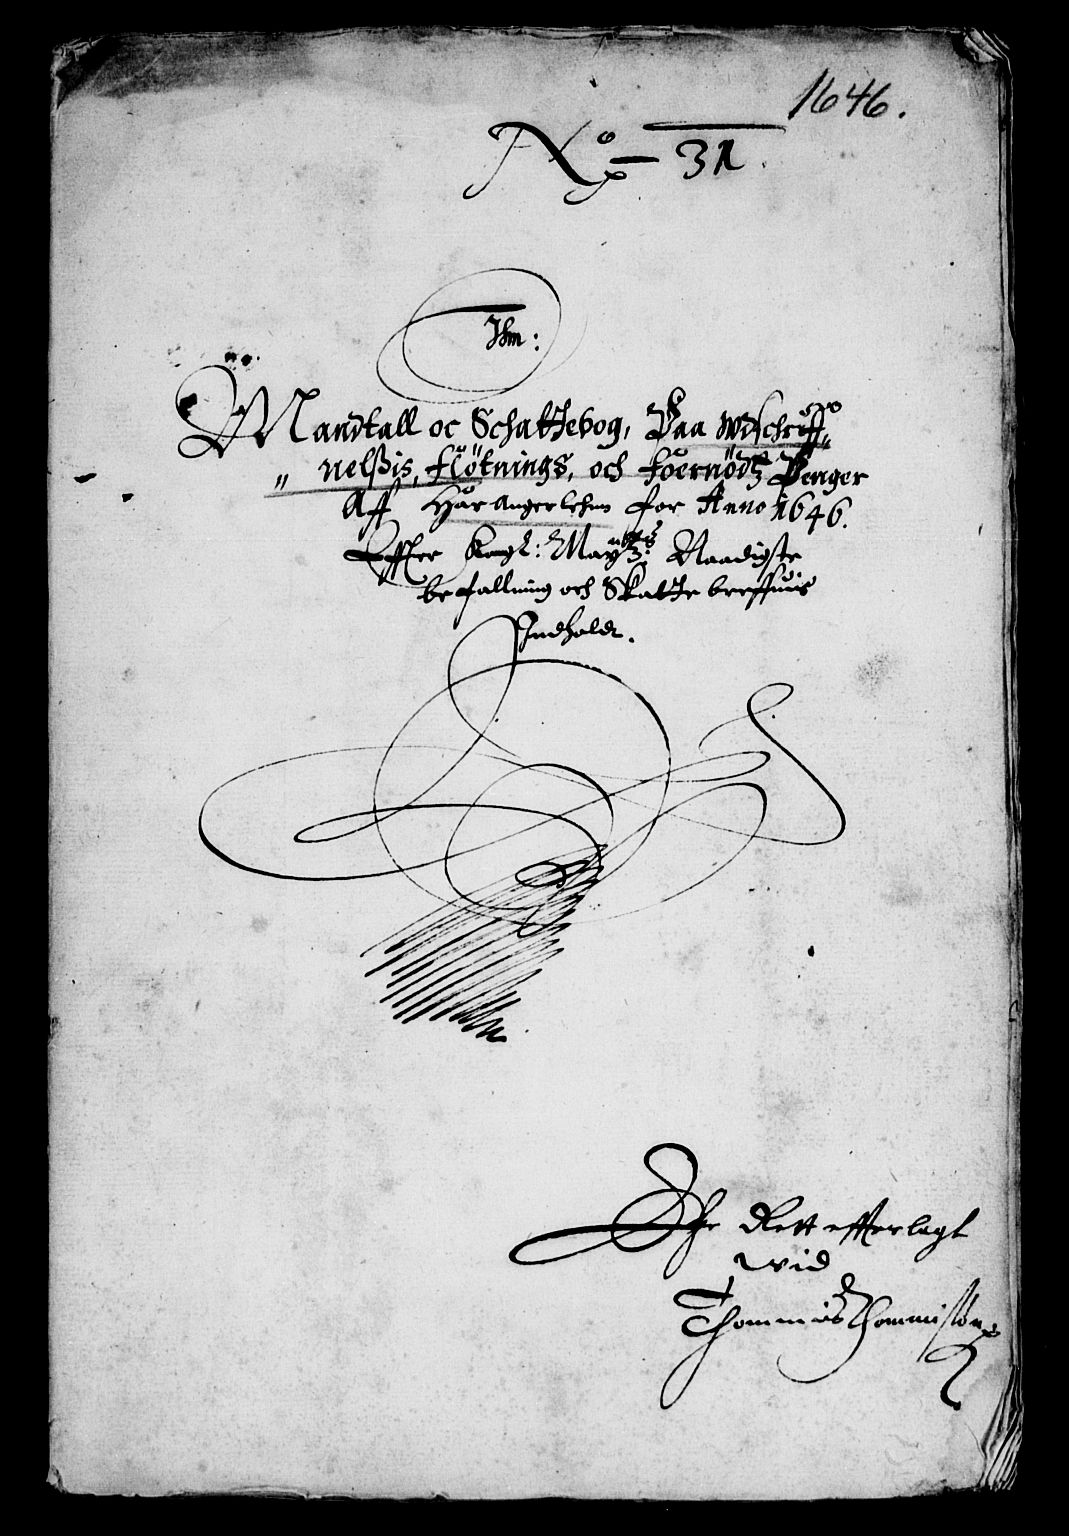 1646.
No 31.
Ihm:
Mandtall oc Schattebog, Paa Wdschriff„
„ nelßis, fløtnings, och foernødtz Penger
Aff Hardangerlehn for Anno 1646.
Effter Kongl: Maytz: Naadigste
befallning och Skatte breffuis
Indhold.
Ehr Rett efterlagt
wid
Thommis Thommisßøn